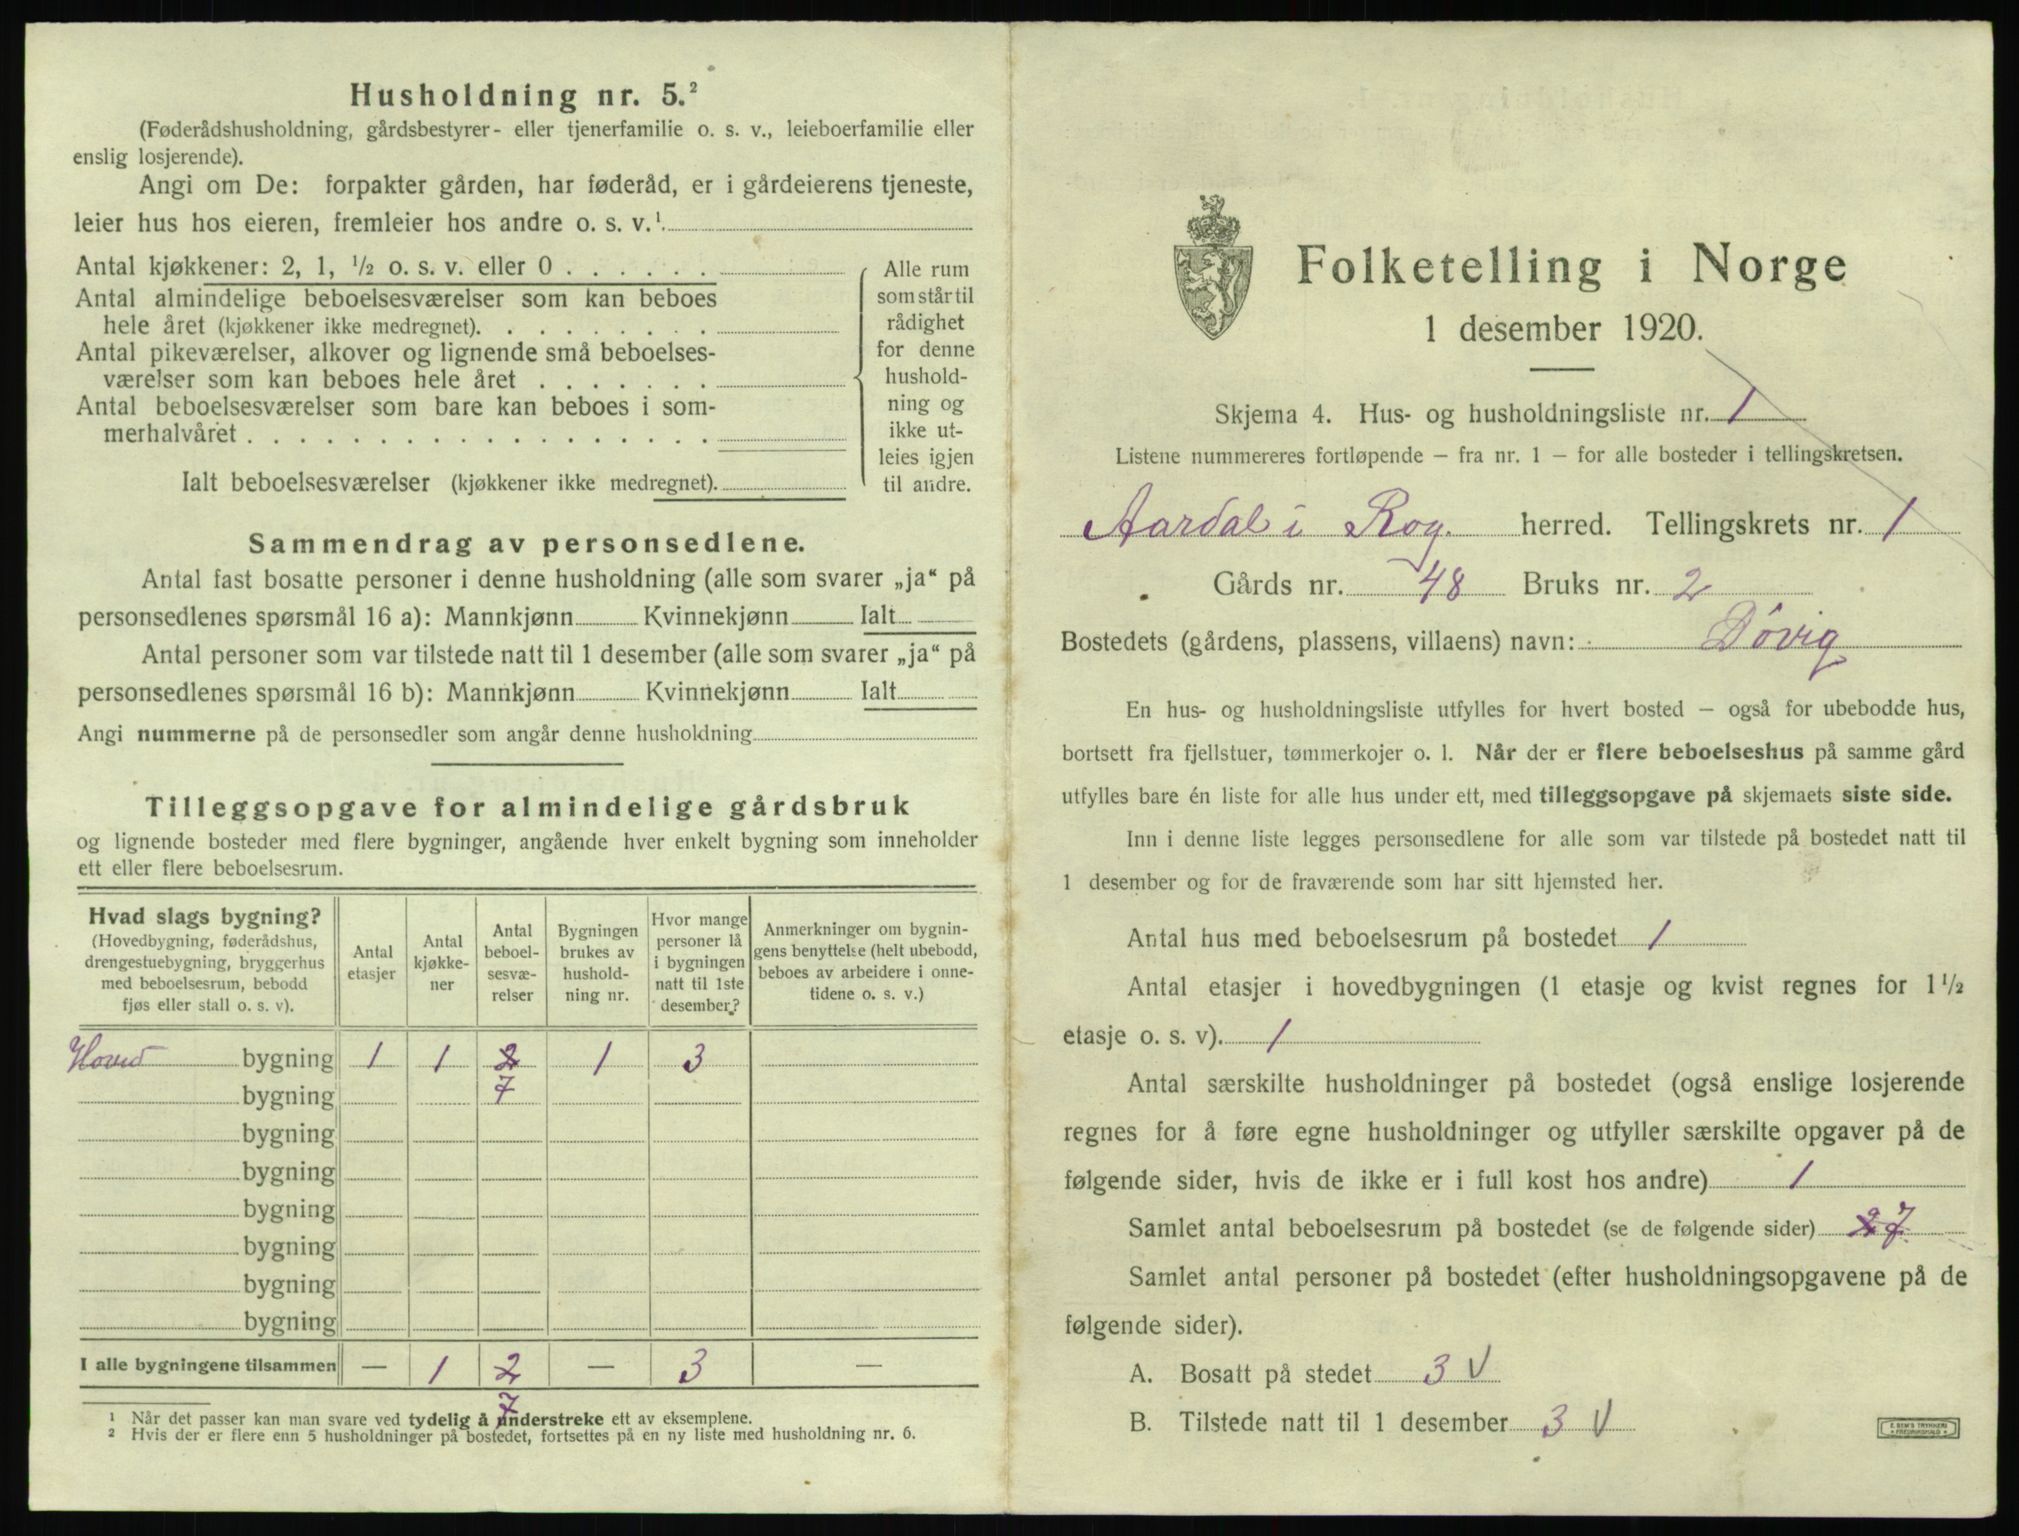 Husholdning nr. 5.²
(Føderådshusholdning, gårdsbestyrer- eller tjenerfamilie o. s. v., leieboerfamilie eller
enslig losjerende).
Angi om De: forpakter gården, har føderåd, er i gårdeierens tjeneste,
leier hus hos eieren, fremleier hos andre o. s. v.¹
Antal kjøkkener: 2, 1, ½ o. s. v. eller 0 . . . . . .
Antal almindelige beboelsesværelser som kan beboes
hele året (kjøkkener ikke medregnet). . . . . . . . .
Antal pikeværelser, alkover og lignende små beboelses-
værelser som kan beboes hele året . . . . . . .
Antal beboelsesværelser som bare kan beboes i som-
merhalvåret . . . . . . . . . . . . . . . . . .
Ialt beboelsesværelser (kjøkkener ikke medregnet).
Alle rum
som står til
rådighet
for denne
hushold-
ning og
ikke ut-
leies igjen
til andre.
Sammendrag av personsedlene.
Antal fast bosatte personer i denne husholdning (alle som svarer „ja“ på
personsedlenes spørsmål 16 a): Mannkjønn Kvinnekjønn Ialt
Antal personer som var tilstede natt til 1 desember (alle som svarer „ja“ på
personsedlenes spørsmål 16 b): Mannkjønn Kvinnekjønn Ialt
Angi nummerne på de personsedler som angår denne husholdning
Tilleggsopgave for almindelige gårdsbruk
og lignende bosteder med flere bygninger, angående hver enkelt bygning som inneholder
ett eller flere beboelsesrum.
Hvad slags bygning?
(Hovedbygning, føderådshus,
drengestuebygning, bryggerhus
med beboelsesrum, bebodd
fjøs eller stall o. s. v).
Antal
etasjer
Antal
kjøkke-
ner
Antal
beboel-
sesvæ-
relser
Bygningen
brukes av
hushold-
ning nr.
Hvor mange
personer lå
i bygningen
natt til 1ste
desember?
Anmerkninger om bygnin-
gens benyttelse (helt ubebodd,
beboes av arbeidere i onne-
tidene o. s. v.)
Hoved bygning 1 1 2 1 3
bygning 7
bygning
bygning
bygning
bygning
bygning
bygning
I alle bygningene tilsammen — 1 2 — 3 —
7
¹ Når det passer kan man svare ved tydelig å understreke ett av eksemplene.
² Hvis der er flere enn 5 husholdninger på bostedet, fortsettes på en ny liste med husholdning nr. 6.
Folketelling i Norge
1 desember 1920.
Skjema 4. Hus- og husholdningsliste nr. 1
Listene nummereres fortløpende – fra nr. 1 – for alle bosteder i tellingskretsen.
Aardal i Rog. herred. Tellingskrets nr. 1
Gårds nr. 48 Bruks nr. 2
Bostedets (gårdens, plassens, villaens) navn: Døvig
En hus- og husholdningsliste utfylles for hvert bosted – også for ubebodde hus,
bortsett fra fjellstuer, tømmerkojer o. l. Når der er flere beboelseshus på samme gård
utfylles bare én liste for alle hus under ett, med tilleggsopgave på skjemaets siste side.
Inn i denne liste legges personsedlene for alle som var tilstede på bostedet natt til
1 desember og for de fraværende som har sitt hjemsted her.
Antal hus med beboelsesrum på bostedet 1
Antal etasjer i hovedbygningen (1 etasje og kvist regnes for 1½
etasje o. s. v). 1
Antal særskilte husholdninger på bostedet (også enslige losjerende
regnes for å føre egne husholdninger og utfyller særskilte opgaver på de
følgende sider, hvis de ikke er i full kost hos andre) 1
Samlet antal beboelsesrum på bostedet (se de følgende sider) 7
Samlet antal personer på bostedet (efter husholdningsopgavene på de
følgende sider).
A. Bosatt på stedet 3 V
B. Tilstede natt til 1 desember 3 V
E. SEM'S TRYKKERI
FREDRIKSHALD